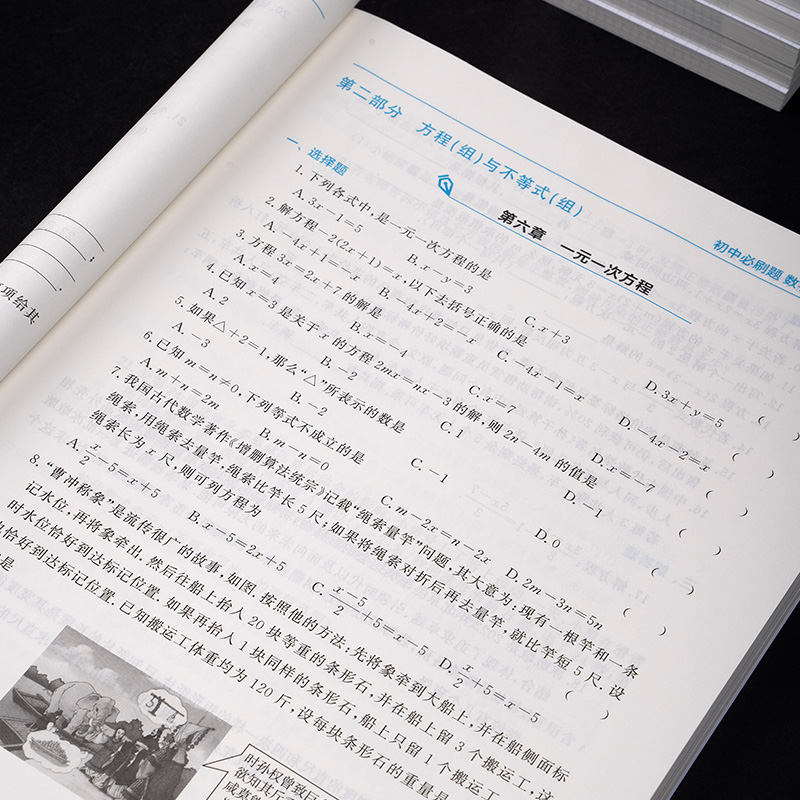 第二部分 方程(组)与不等式(组)
初中必刷题 数
第六章 一元一次方程
一、选择题
1. 下列各式中,是一元一次方程的是 ( )
A. 3x-1=5 B. x-y=3 C. x+3 D. 3x+y=5
2. 解方程-2(2x+1)=x,以下去括号正确的是 ( )
A. -4x+1=-x B. -4x+2=-x C. -4x-1=x D. -4x-2=x
3. 方程3x=2x+7的解是 ( )
A. x=4 B. x=-4 C. x=7 D. x=-7
4. 已知x=3是关于x的方程2mx=nx-3的解,则2n-4m的值是 ( )
A. 2 B. -2 C. 1 D. -1
5. 如果△+2=1,那么“△”所表示的数是 ( )
A. -3 B. -2 C. -1 D. 0
6. 已知m=n≠0,下列等式不成立的是 ( )
A. m+n=2m B. m-n=0 C. m-2x=n-2x D. 2m-3n=5n
7. 我国古代数学著作《增删算法统宗》记载“绳索量竿”问题,其大意为:现有一根竿和一条
绳索,用绳索去量竿,绳索比竿长5尺;如果将绳索对折后再去量竿,就比竿短5尺.设
绳索长为x尺,则可列方程为 ( )
A. x/2-5=x+5 B. x-5=2x+5 C. (x-5)/2+5=x-5 D. x/2+5=x-5
8. “曹冲称象”是流传很广的故事,如图.按照他的方法:先将象牵到大船上,并在船侧面标
记水位,再将象牵出.然后往船上抬入20块等重的条形石,并在船上留3个搬运工,这
时水位恰好到达标记位置.如果再抬入1块同样的条形石,船上只留1个搬运工,
恰好到达标记位置.已知搬运工体重均为120斤,设每块条形石的重量是
是
时孙权曾致巨
欲知其斤
项给其